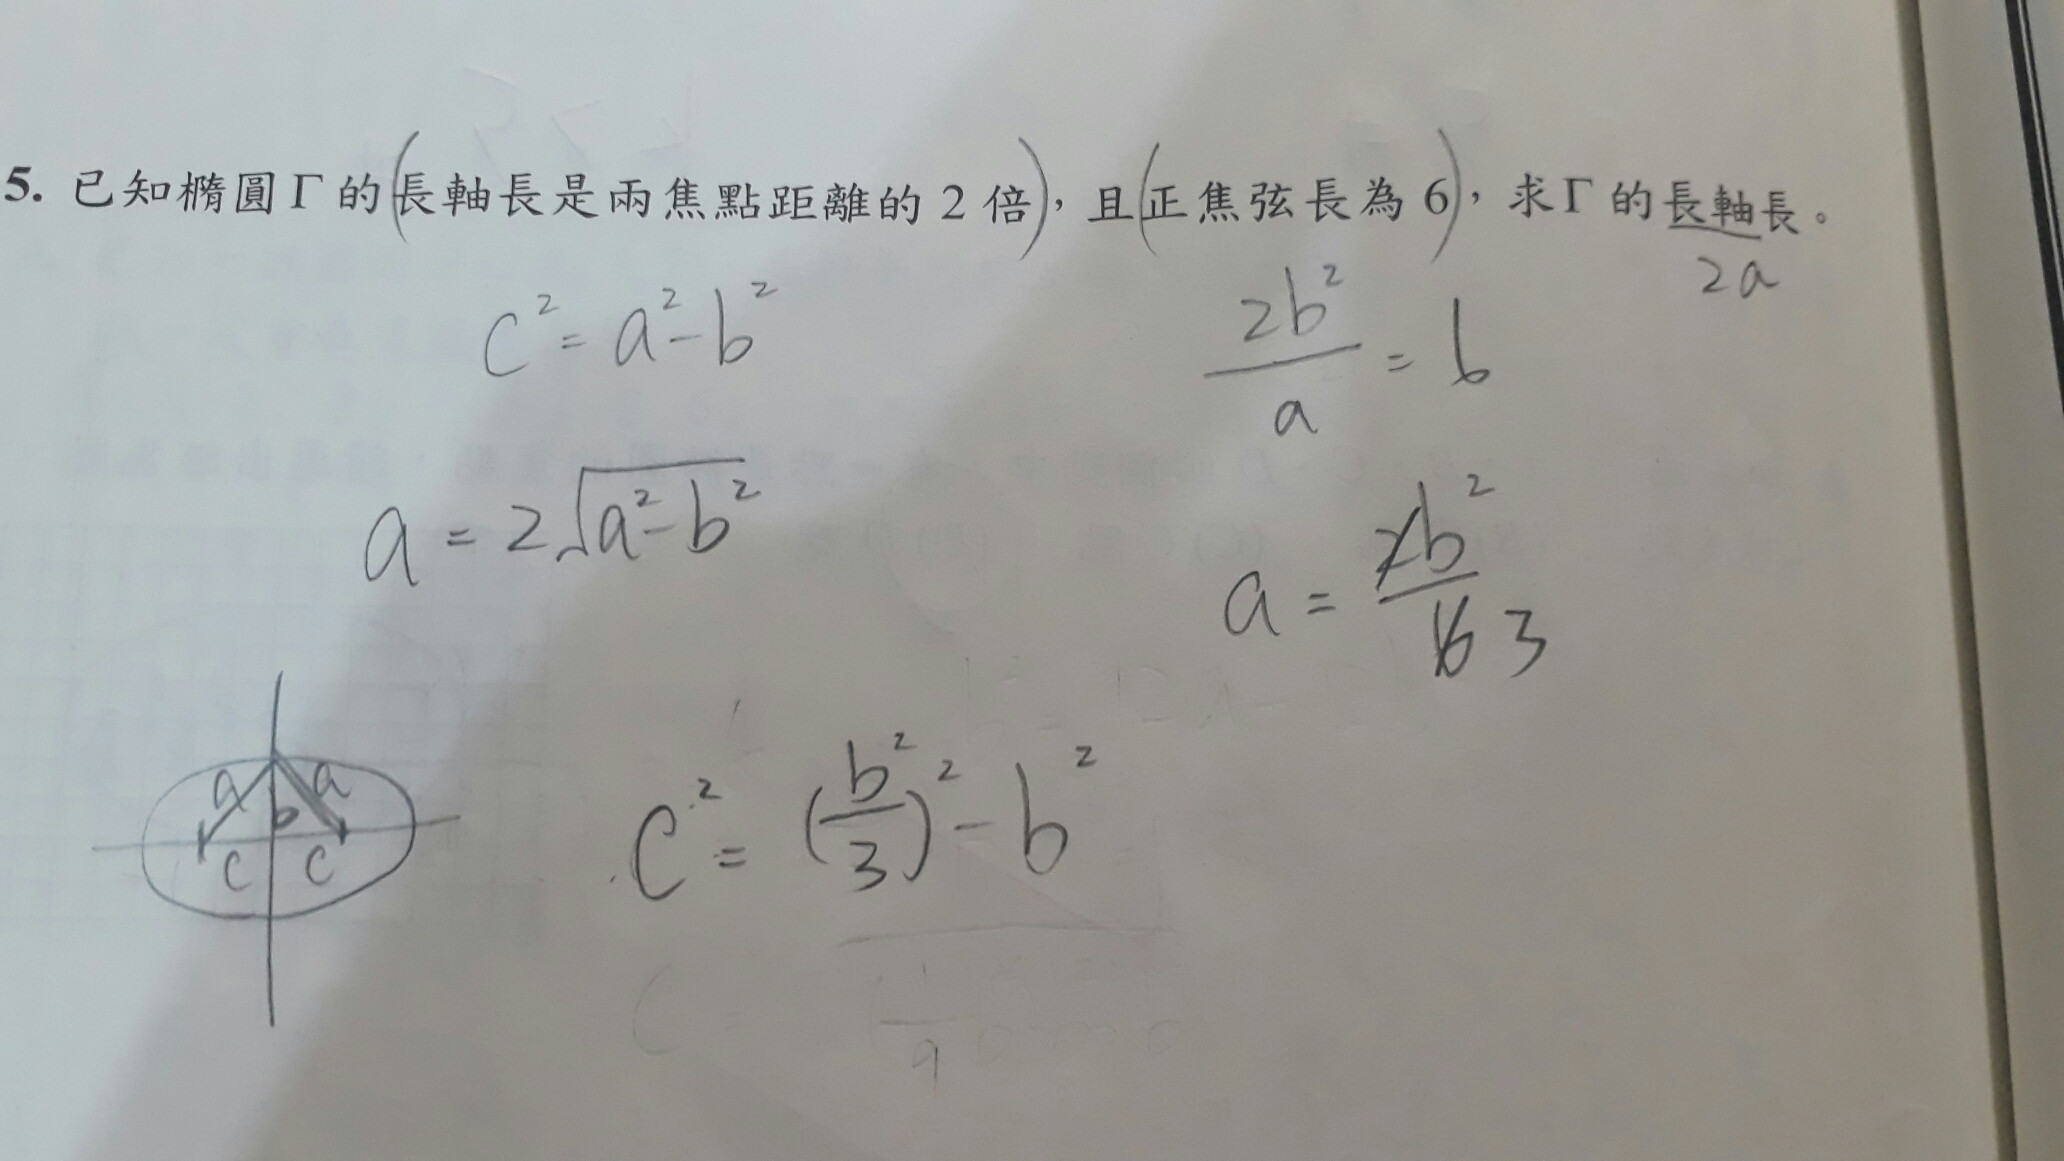 5. 已知橢圓Γ的(長軸長是兩焦點距離的2倍),且(正焦弦長為6),求Γ的長軸長。
2a
c² = a² - b²
2b²/a = 6
a = 2√(a² - b²)
a = 2b²/6 3
a a
b
c c
c² = (b²/3)² - b²